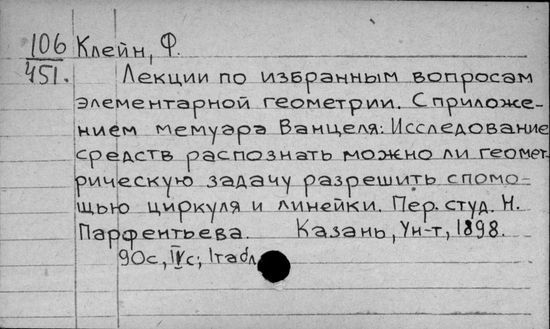 106 Клейн, Ф.
451. Лекции по избранным вопросам
элементарной геометрии. С приложе-
нием мемуара Ванцеля: Исследование
средств распознать можно ли геомет-
рическую задачу разрешить с помо-
щью циркуля и линейки. Пер. студ. Н.
Парфентьева. Казань, Ун-т, 1898.
90с, IVс; 1табл